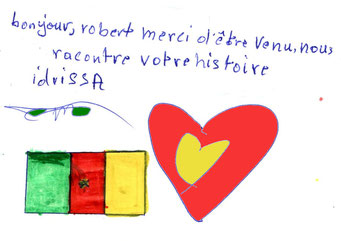 bonjour, robert merci d'être venu, nous
racontre votre histoire
idrissA